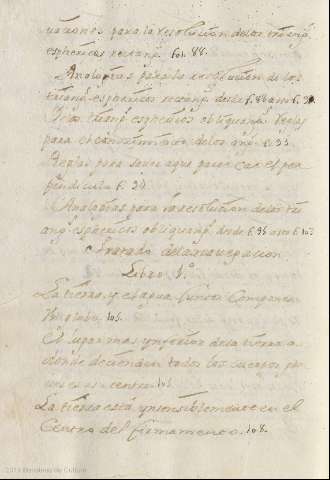 uaciones para la resolucion delos triang.
esphericos rectang. fol. 88.
Analogias para la resolucion de los
triang. esphericos rectang. desde f. 88 asta f.
Delos triang. esphericos obliquang. Reglas
para el conosimiento delos ang. f. 93
Reglas para saver aque parte cae el per
pendiculo f. 94.
Analogias para la resolucion delos tri
ang. esphericos obliquang. desde f. 95 asta f. 103
Tratado dela navegacion
Libro 1.º
La tierra, y el agua juntos componen
Vn globo 105.
El lugar mas ynferior dela tierra a
donde decienden todos los cuerpos gra
ues es su centro. 105
La tierra está ynsensiblemente en el
Centro del firmamento. 108.
2019 Ministerio de Cultura